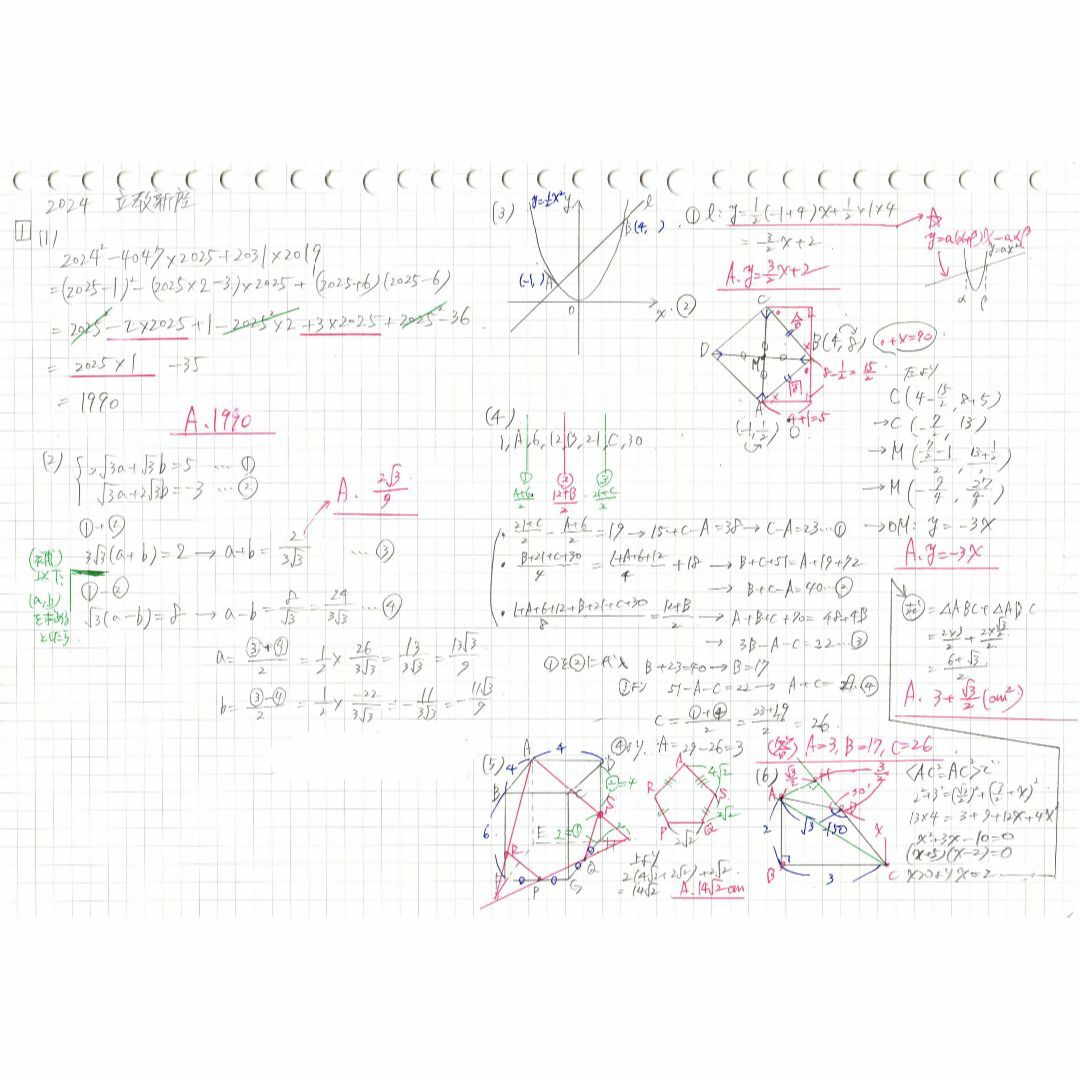 2024 立教新座
1 (1)
2024² - 4047 × 2025 + 2031 × 2019
= (2025-1)² - (2025×2-3)×2025 + (2025+6)(2025-6)
= 2025² - 2×2025 + 1 - 2025²×2 + 3×2025 + 2025² - 36
= 2025×1 - 35
= 1990
A. 1990
(2) { 2√3a+√3b=5 … ①
√3a+2√3b=-3 … ②
①+②
3√3(a+b)=2 → a+b= 2/3√3 … ③
A. 2√3/9
以下
(a,b)
①-②
√3(a-b)=8 → a-b= 8/√3 = 24/3√3 … ④
a= (③+④)/2 = 1/2 × 26/3√3 = 13/3√3 = 13√3/9
b= (③-④)/2 = 1/2 × -22/3√3 = -11/3√3 = -11√3/9
(3) y=½x² y l
B(4, )
(-1, ) A
O x
① l: y=½(-1+4)x+½×1×4
= 3/2 x+2
A. y=3/2 x+2
y=a(α+β)x-aαβ
y=ax²
α β
②
C
D B(4, 8) •+×=90
M
8-½=15/2
A 4+1=5
(-1, ½) O
C(4-15/2, 8+5)
→C(-7/2, 13)
→M
→M(-9/4, 27/4)
→OM: y=-3x
A. y=-3x
(4)
1, A, 6, 12, B, 21, C, 30
① ② ③
(A+6)/2 (12+B)/2 (21+C)/2
• (21+C)/2 - (A+6)/2 = 19 → 15+C-A=38 → C-A=23 … ①
• (B+21+C+30)/4 = (1+A+6+12)/4 + 18 → B+C+51=A+19+72
→ B+C-A=40 … ②
• (1+A+6+12+B+21+C+30)/8 = (12+B)/2 → A+B+C+70=48+4B
→ 3B-A-C=22 … ③
①を②に代入 B+23=40 → B=17
③より 51-A-C=22 → A+C=29 … ④
C= (①+④)/2 = (23+29)/2 = 26
④より A=29-26=3
(答) A=3, B=17, C=26
(5) A 4 D
4
B C
6
E
S
R Q
P G
A
R 4√2 S
2√2
P Q
2√2
上より
2(4√2+2√2)+2√2
= 14√2
A. 14√2 cm
(6)
A √3/2 H 3/2
30°
2 √3 150 x
B 3 C
<AC²=AC²>で
2²+3²=(√3/2)²+(3/2+x)²
13×4=3+9+12x+4x²
x²+3x-10=0
(x+5)(x-2)=0
x>0より x=2
= △ABC+△ADC
= 2×3/2
= (6+√3)/2
A. 3+√3/2 (cm²)